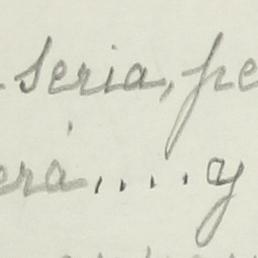 seria, pe
erá,.... y